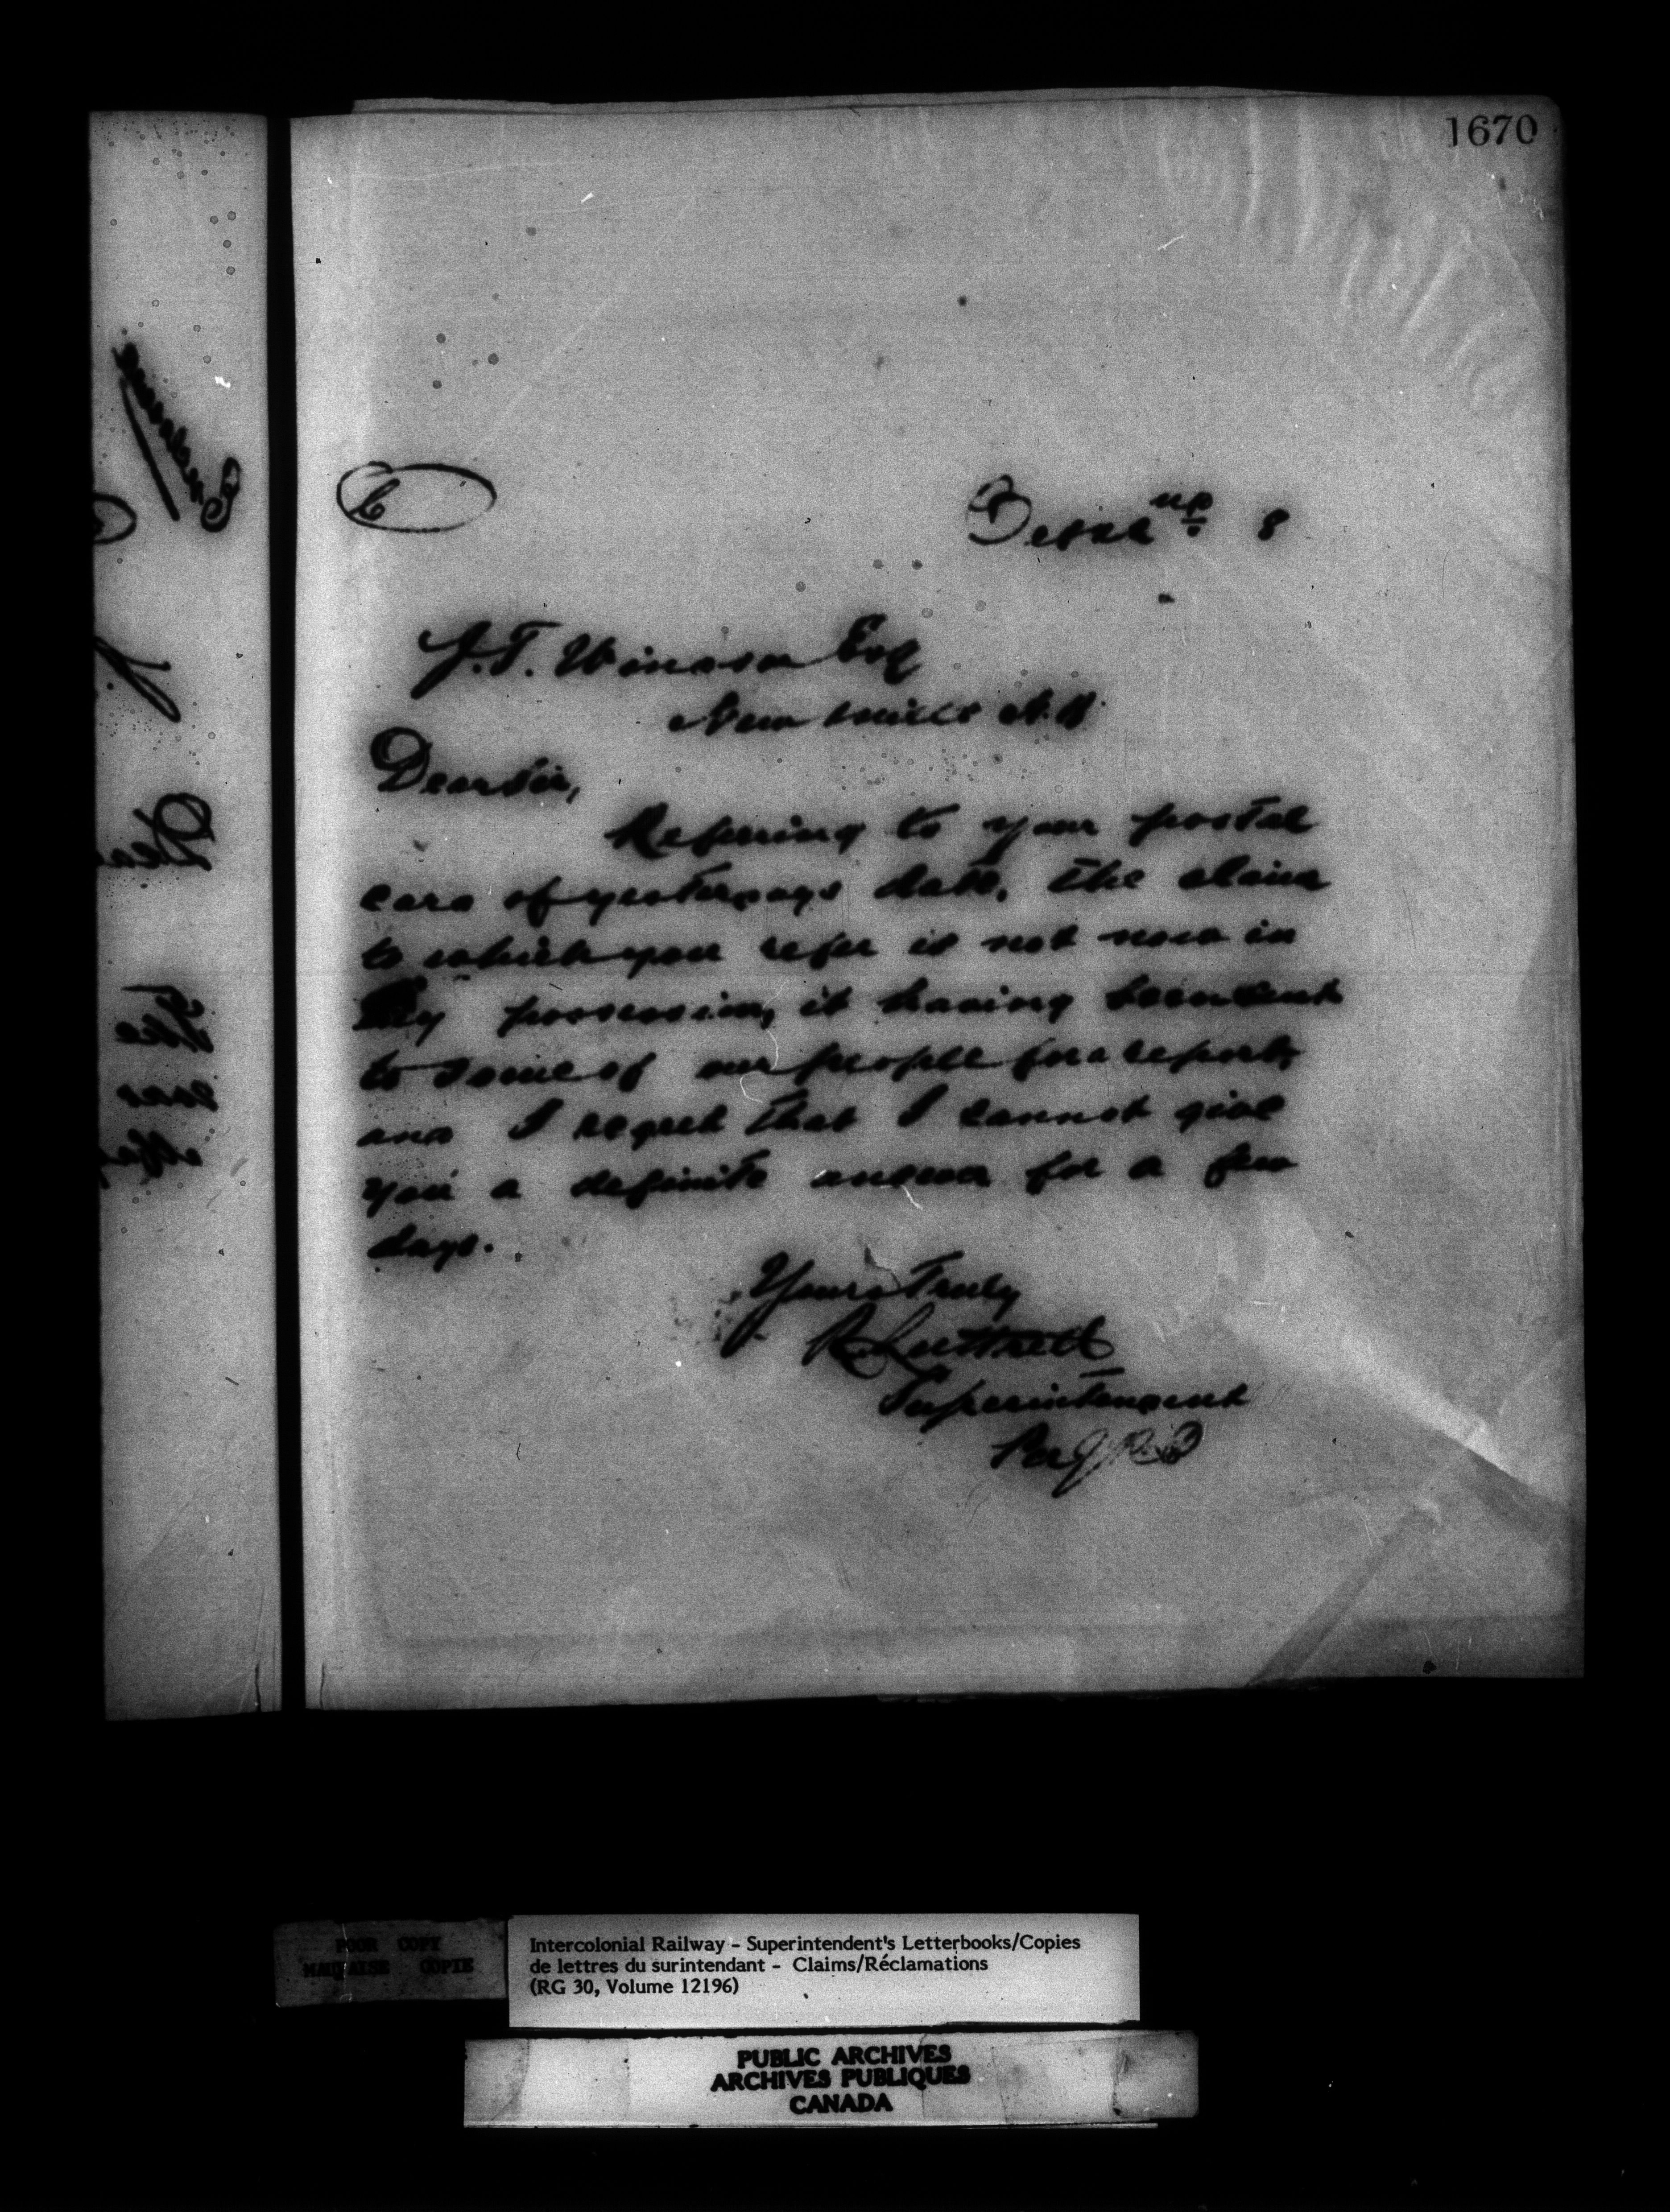 1670
C
Decr 2nd 8
J.T. Windsor Esq
New Mills N.B.
Dear Sir,
Referring to your postal
card of yesterdays date, the claim
to which you refer is not now in
my possession, it having been sent
to some of our people for a report,
and I regret that I cannot give
you a definite answer for a few
days.
Yours Truly
R. Luttrell
Superintendent
Per
POOR COPY
MAUVAISE COPIE
Intercolonial Railway - Superintendent's Letterbooks/Copies
de lettres du surintendant - Claims/Réclamations
(RG 30, Volume 12196)
PUBLIC ARCHIVES
ARCHIVES PUBLIQUES
CANADA